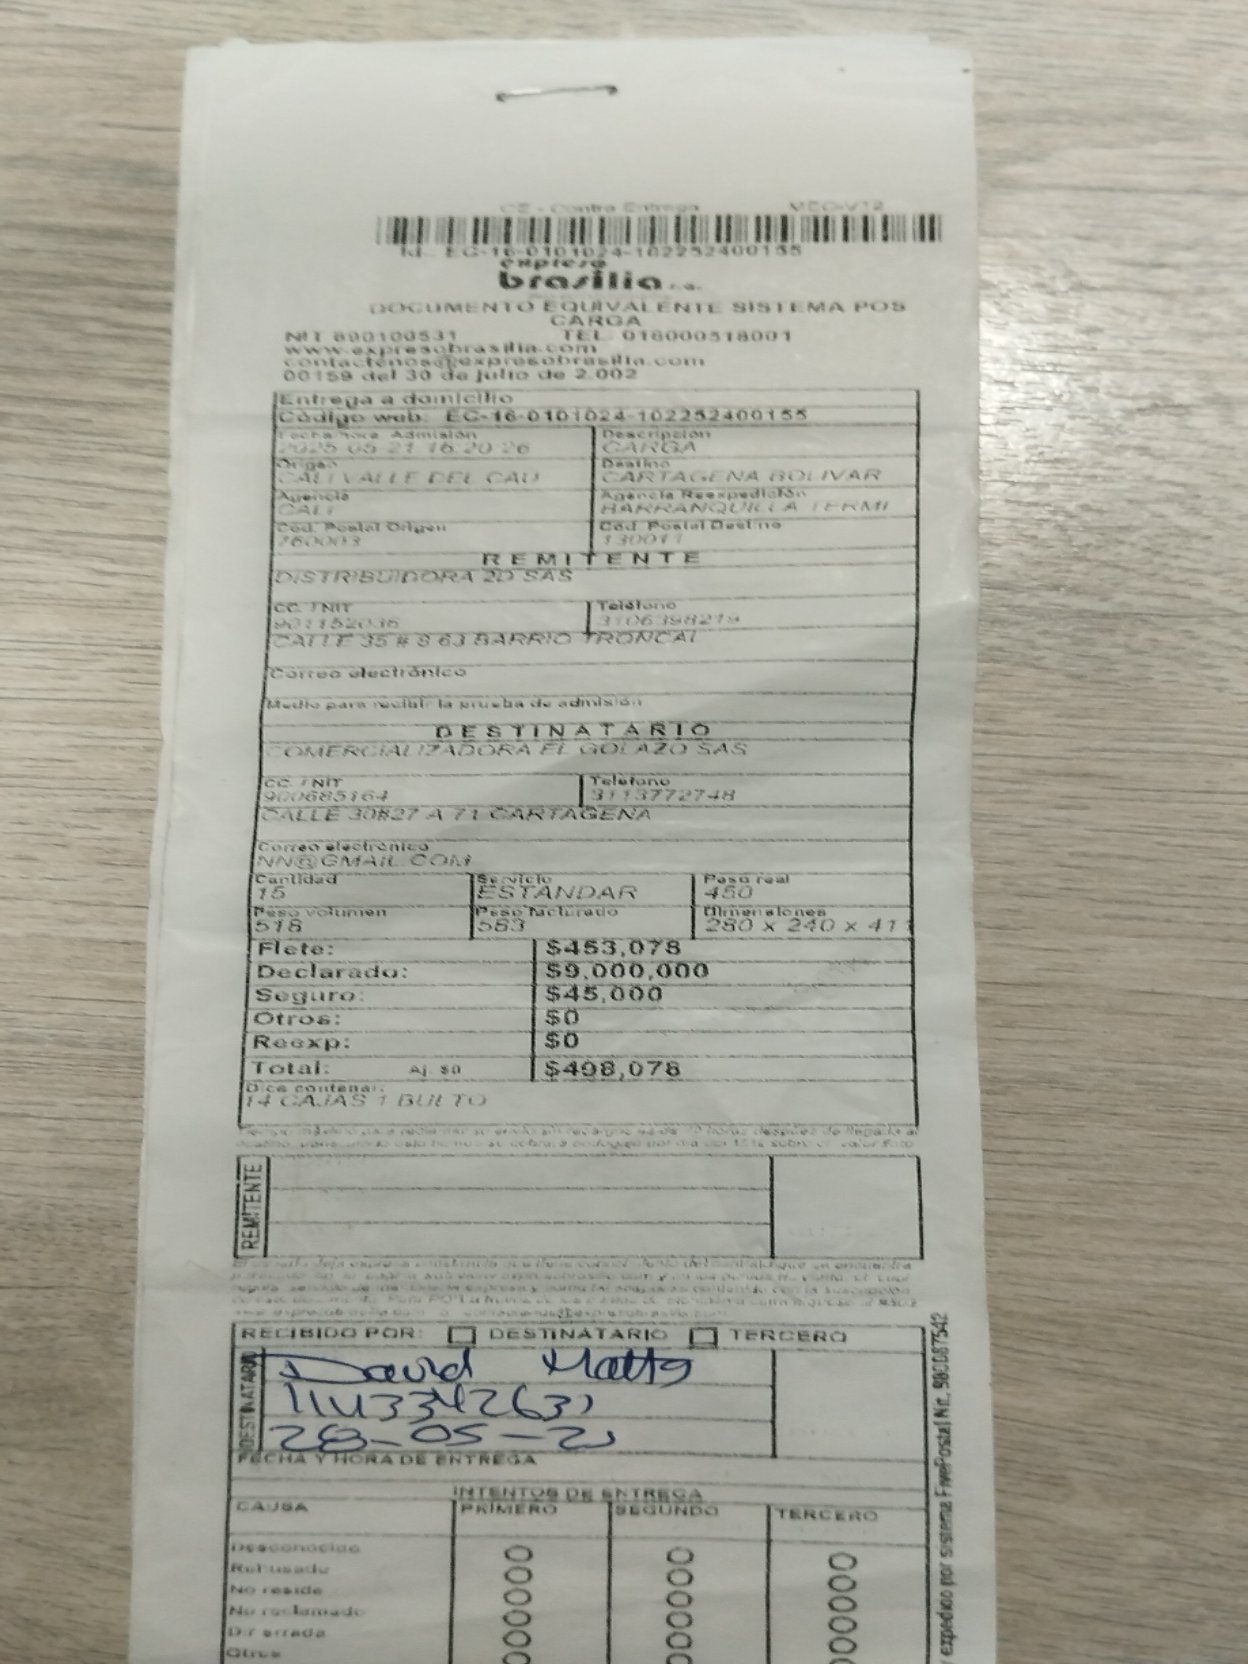 CE - Contra Entrega
EC-16-0101024-102252400155
expreso
brasilia s.a.
DOCUMENTO EQUIVALENTE SISTEMA POS
CARGA
NIT 890100531 TEL. 018000518001
www.expresobrasilia.com
contactenos@expresobrasilia.com
00159 del 30 de julio de 2.002
Entrega a domicilio
Código web: EC-16-0101024-102252400155
Fecha hora Admisión Descripción
2025 05 21 16 20 26 CARGA
Origen Destino
CALI VALLE DEL CAU CARTAGENA BOLIVAR
Agencia Agencia Reexpedición
CALI BARRANQUILLA TERMI
Cód. Postal Origen Cód. Postal Destino
760003 130011
REMITENTE
DISTRIBUIDORA 2D SAS
CC. / NIT Teléfono
901152036 3106398219
CALLE 35 # 8 63 BARRIO TRONCAL
Correo electrónico
Medio para recibir la prueba de admisión
DESTINATARIO
COMERCIALIZADORA EL GOLAZO SAS
CC. / NIT Teléfono
900685164 3113772748
CALLE 30#27 A 71 CARTAGENA
Correo electrónico
NN@GMAIL.COM
Cantidad Servicio Peso real
15 ESTANDAR 450
Peso volumen Peso facturado Dimensiones
518 583 280 x 240 x 411
Flete: $453,078
Declarado: $9,000,000
Seguro: $45,000
Otros: $0
Reexp: $0
Total: Aj. $0 $498,078
Dice contener:
14 CAJAS 1 BULTO
REMITENTE
RECIBIDO POR: DESTINATARIO TERCERO
DESTINATARIO
David
28-05-25
FECHA Y HORA DE ENTREGA
INTENTOS DE ENTREGA
CAUSA PRIMERO SEGUNDO TERCERO
Desconocido
Rehusado
No reside
No reclamado
Dir errada
Otros
y expedido por sistema FivePostal Nit. 900087542